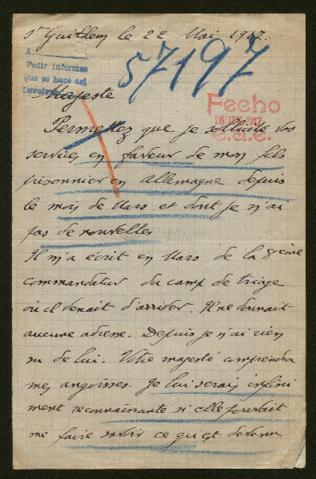 St Guilhem le 22 Mai 1917.
57197
A
Pedir informes
que se hace así
Majesté
Fecho
1917
Permettez que je sollicite vos
services en faveur de mon fils
prisonnier en Allemagne depuis
le mois de Mars et dont je n'ai
pas de nouvelles
Il m'a écrit en Mars de la 8ème
commandatur du camp de triage
où il venait d'arriver. Il ne donnait
aucune adresse. Depuis je n'ai rien
su de lui. Votre majesté comprendra
mes angoisses. Je lui serais infini
ment reconnaissante si elle pouvait
me faire savoir ce qu'est devenu